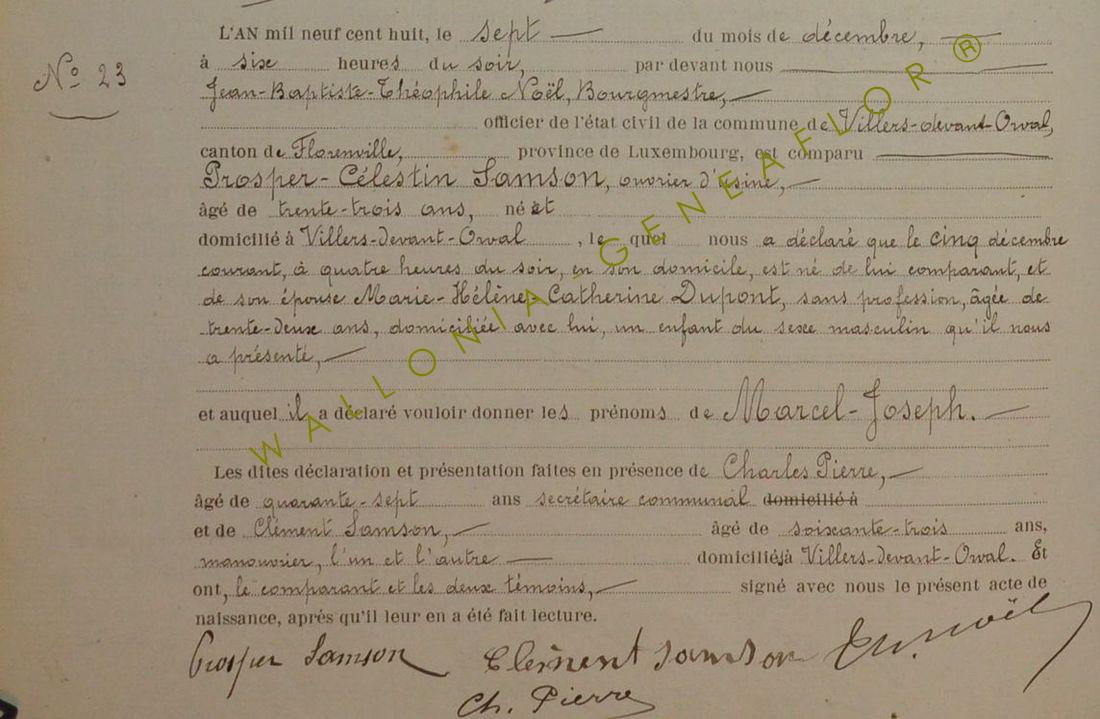 L'AN mil neuf cent huit, le sept du mois de décembre,
à six heures du soir, par devant nous
Nº 23
Jean-Baptiste-Théophile Noël, Bourgmestre,
officier de l'état civil de la commune de Villers-devant-Orval,
canton de Florenville, province de Luxembourg, est comparu
Prosper-Célestin Samson, ouvrier d'usine,
âgé de trente-trois ans, né et
domicilié à Villers-devant-Orval, le quel nous a déclaré que le cinq décembre
courant, à quatre heures du soir, en son domicile, est né de lui comparant, et
de son épouse Marie-Hélène-Catherine Dupont, sans profession, âgée de
trente-deux ans, domiciliée avec lui, un enfant du sexe masculin qu'il nous
a présenté,
et auquel il a déclaré vouloir donner les prénoms de Marcel-Joseph.
Les dites déclaration et présentation faites en présence de Charles Pierre,
âgé de quarante-sept ans secrétaire communal domicilié à
et de Clément Samson, âgé de soixante-trois ans,
manouvrier, l'un et l'autre domiciliés à Villers-devant-Orval. Et
ont, le comparant et les deux témoins, signé avec nous le présent acte de
naissance, après qu'il leur en a été fait lecture.
Prosper Samson Clément Samson Th. Noël
Ch. Pierre
WALLONIA-GENEAFLOR ®